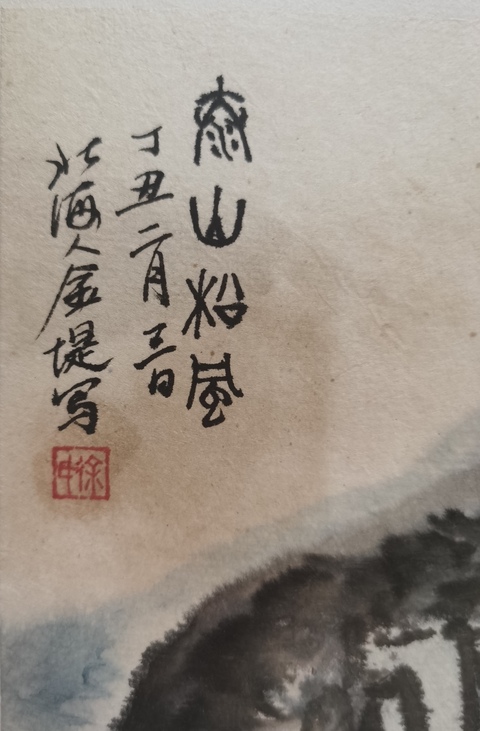 泰山松风
丁丑二月三日
北海人金堤写
徐